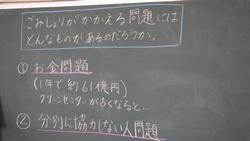 ごみしょりがかかえる問題には
どんなものがあるのだろうか。
① お金問題
(1年で約61億円)
クリーンセンターが古くなると…
② 分別に協力しない人問題